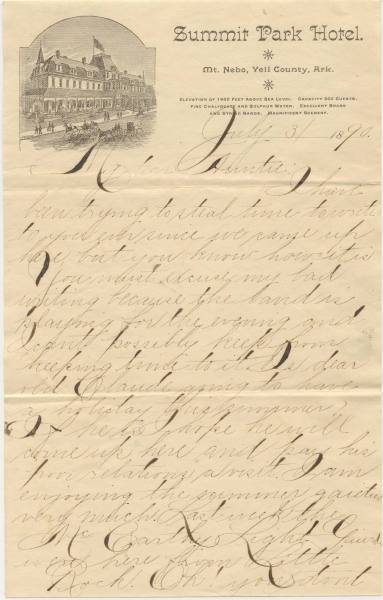 Summit Park Hotel.
Mt. Nebo, Yell County, Ark.
Elevation of 1900 Feet Above Sea Level. Capacity 300 Guests.
Fine Chalybeate and Sulphur Water. Excellent Brass
and String Bands. Magnificent Scenery.
July 31 1890.
My dear Auntie:
I have
been trying to steal time to write
to you ever since we came up
here, but you know how it is
You must excuse my bad
writing because the band is
playing for the evening and I
can't possibly keep from
keeping time to it. Is dear
old Claude going to have
a holiday this summer?
If he is I hope he will
come up here and pay his
poor relations a visit. I am
enjoying the summer gaieties
very much. Last week the
Mc Carthy Light Guards
were here from Little
Rock. Oh! you don't